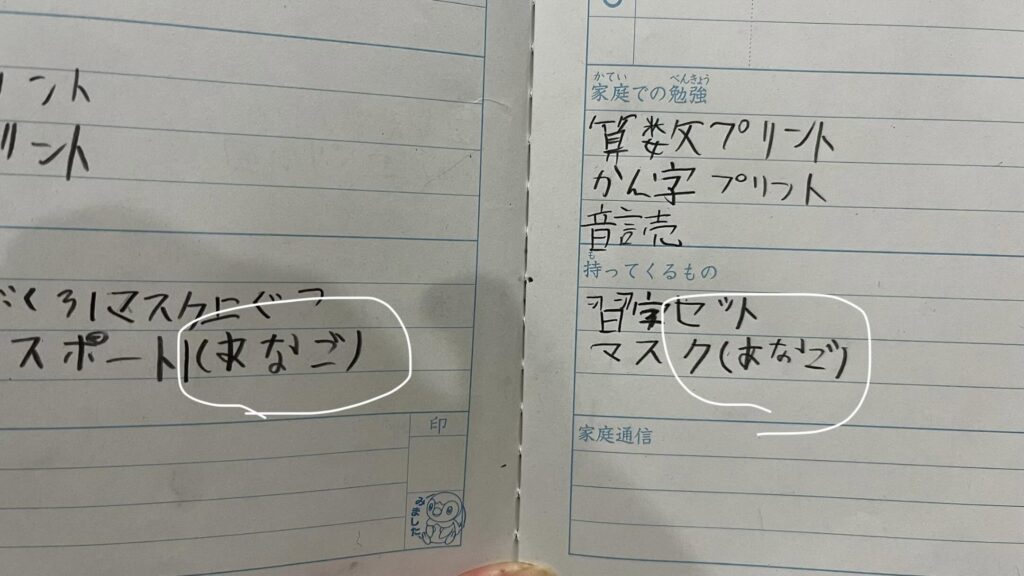 リント
リント
マスク
スポート(あなご)
印
みました
かてい べんきょう
家庭での勉強
算数プリント
かん字プリント
音読
も
持ってくるもの
習字セット
マスク(あなご)
家庭通信